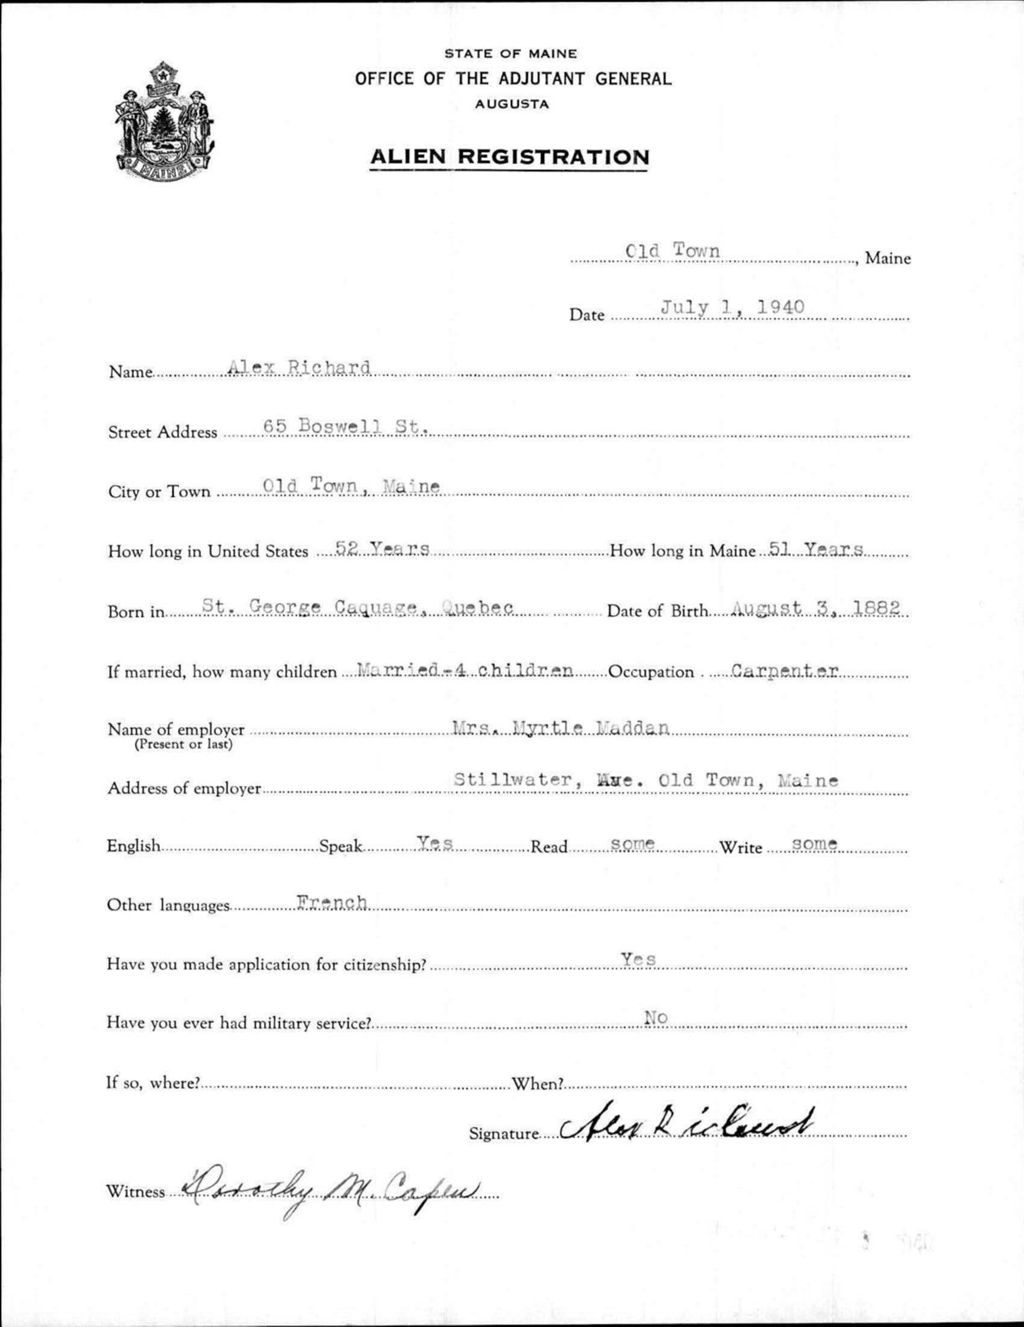 STATE OF MAINE
OFFICE OF THE ADJUTANT GENERAL
AUGUSTA
ALIEN REGISTRATION
MAINE
Old Town, Maine
Date July 1, 1940
Name Alex Richard
Street Address 65 Boswell St.
City or Town Old Town, Maine
How long in United States 52 Years How long in Maine 51 Years
Born in St. George Caquage, Quebec Date of Birth August 3, 1882
If married, how many children Married-4 children Occupation Carpenter
Name of employer Mrs. Myrtle Maddan
(Present or last)
Address of employer Stillwater, Ave. Old Town, Maine
English Speak Yes Read some Write some
Other languages French
Have you made application for citizenship? Yes
Have you ever had military service? No
If so, where? When?
Signature Alex Richard
Witness Dorothy M. Capen